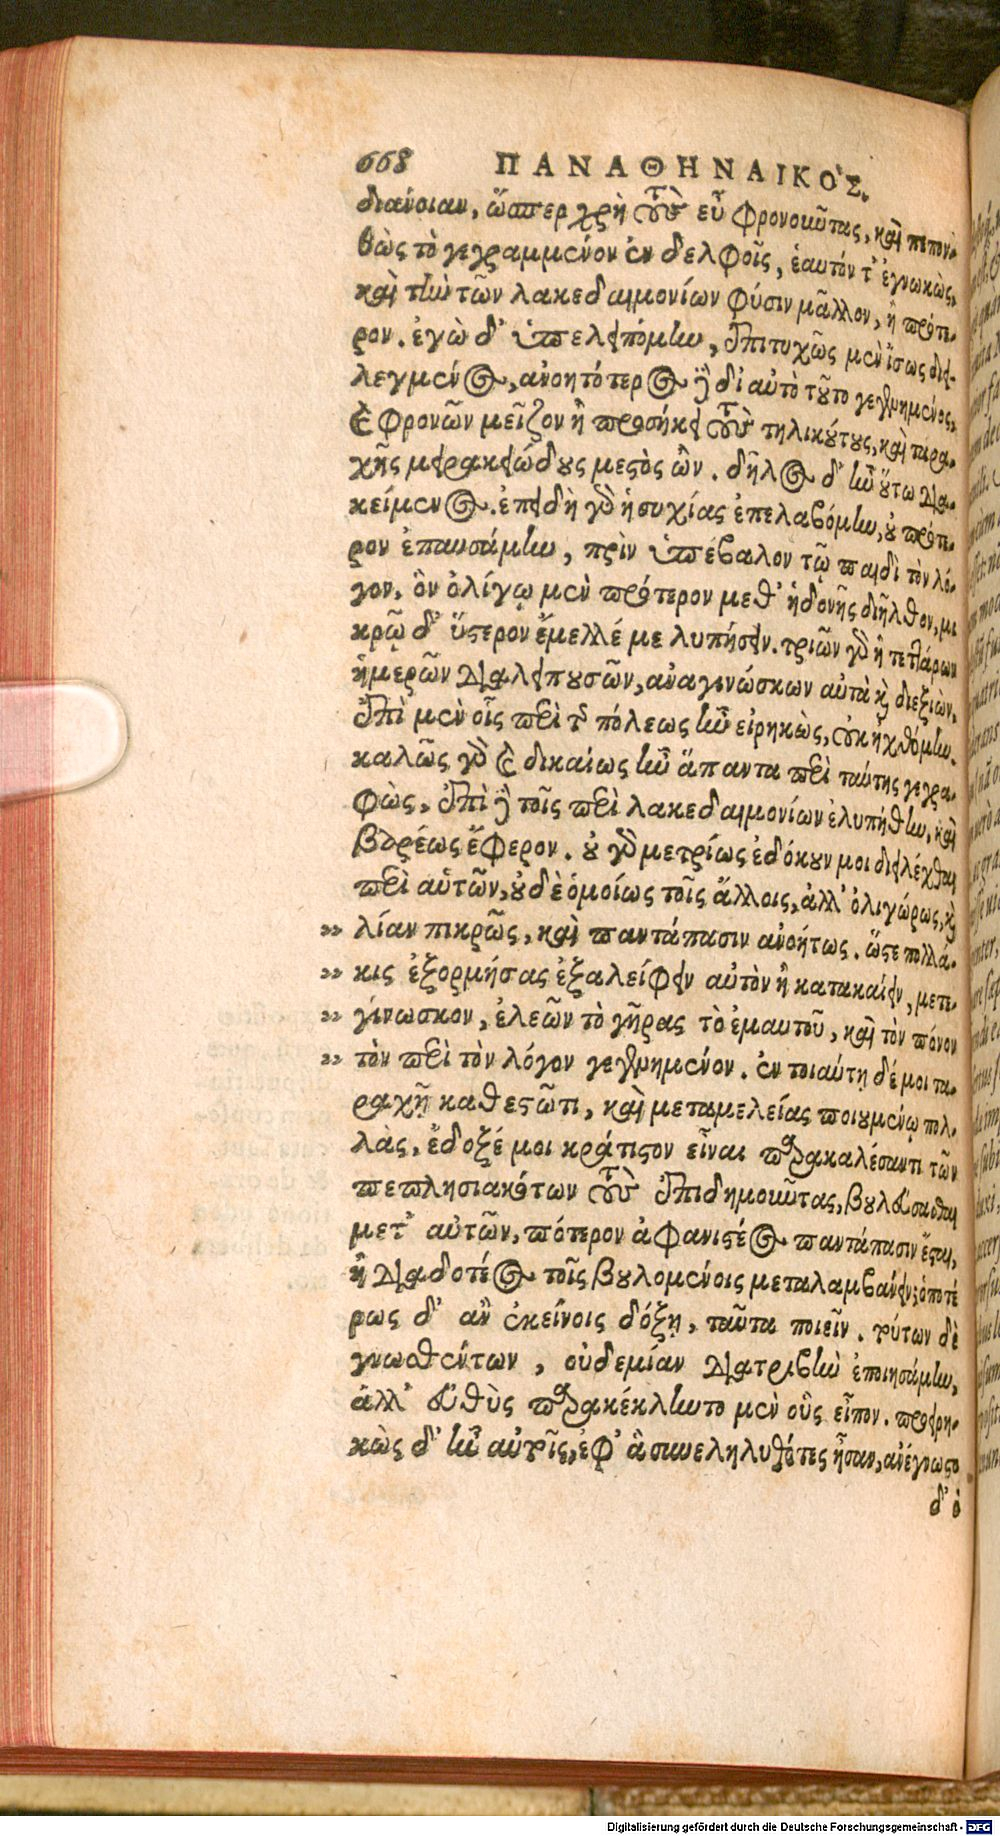 668 ΠΑΝΑΘΗΝΑΙΚΟΣ.
διάνοιαν, ὥσπερ χρὴ τοὺς εὖ φρονοῦντας, καὶ πεπον-
θὼς τὸ γεγραμμένον ἐν δελφοῖς, ἑαυτόν τ' ἐγνωκὼς,
καὶ τὴν τῶν λακεδαιμονίων φύσιν μᾶλλον, ἢ πρότε-
ρον. ἐγὼ δ' ὑπελειπόμην, ἐπιτυχῶς μὲν ἴσως διει-
λεγμένος, ἀνοητότερος δὲ δι' αὐτὸ τοῦτο γεγενημένος,
καὶ φρονῶν μεῖζον ἢ προσήκει τοὺς τηλικούτους, καὶ ταρα-
χῆς μειρακειώδους μεστὸς ὤν. δῆλος δ' ἦν οὕτω δια-
κείμενος. ἐπειδὴ γὰρ ἡσυχίας ἐπελαβόμην, οὐ πρότε-
ρον ἐπαυσάμην, πρὶν ὑπέβαλον τῷ παιδὶ τὸν λό-
γον, ὃν ὀλίγῳ μὲν πρότερον μεθ' ἡδονῆς διῆλθον, μι
κρῷ δ' ὕστερον ἔμελλέ με λυπήσειν. τριῶν γὰρ ἢ τεττάρων
ἡμερῶν διαλειπουσῶν, ἀναγινώσκων αὐτὰ καὶ διεξιὼν,
ἐπὶ μὲν οἷς περὶ τῆς πόλεως ἦν εἰρηκὼς, οὐκ ἠχθόμην.
καλῶς γὰρ καὶ δικαίως ἦν ἅπαντα περὶ ταύτης γεγρα-
φὼς. ἐπὶ δὲ τοῖς περὶ λακεδαιμονίων ἐλυπήθην, καὶ
βαρέως ἔφερον. οὐ γὰρ μετρίως ἐδόκουν μοι διειλέχθαι
περὶ αὐτῶν, οὐδὲ ὁμοίως τοῖς ἄλλοις, ἀλλ' ὀλιγώρως, καὶ
„ λίαν πικρῶς, καὶ παντάπασιν ἀνοήτως. ὥστε πολλά-
„ κις ἐξορμήσας ἐξαλείφειν αὐτὸν ἢ κατακαίειν, μετε-
„ γίνωσκον, ἐλεῶν τὸ γῆρας τὸ ἐμαυτοῦ, καὶ τὸν πόνον
„ τὸν περὶ τὸν λόγον γεγενημένον. ἐν τοιαύτῃ δέ μοι τα-
ραχῇ καθεστῶτι, καὶ μεταμελείας ποιουμένῳ πολ-
λὰς, ἔδοξέ μοι κράτιστον εἶναι παρακαλέσαντι τῶν
πεπλησιακότων τοὺς ἐπιδημοῦντας, βουλεύσασθαι
μετ' αὐτῶν, πότερον ἀφανιστέος παντάπασιν ἔσται,
ἢ διαδοτέος τοῖς βουλομένοις μεταλαμβάνειν· ὁποτέ
ρως δ' ἂν ἐκείνοις δόξῃ, ταῦτα ποιεῖν. τούτων δὲ
γνωσθέντων, οὐδεμίαν διατριβὴν ἐποιησάμην,
ἀλλ' εὐθὺς παρακέκληντο μὲν οὓς εἶπον. προειρη-
κὼς δ' ἦν αὐτοῖς, ἐφ' ἃ συνεληλυθότες ἦσαν, ἀνέγνωστο
δ' ὁ
Digitalisierung gefördert durch die Deutsche Forschungsgemeinschaft - DFG